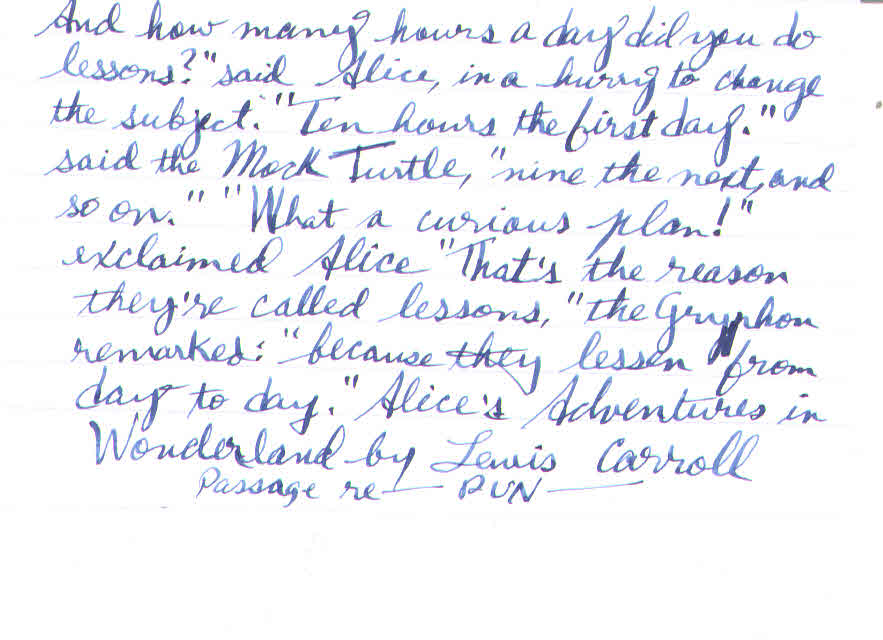 And how many hours a day did you do
lessons?" said Alice, in a hurry to change
the subject. "Ten hours the first day."
said the Mock Turtle, "nine the next, and
so on." "What a curious plan!"
exclaimed Alice "That's the reason
they're called lessons, "the Gryphon
remarked: "because they lessen from
day to day." Alice's Adventures in
Wonderland by Lewis Carroll
Passage re— PUN —